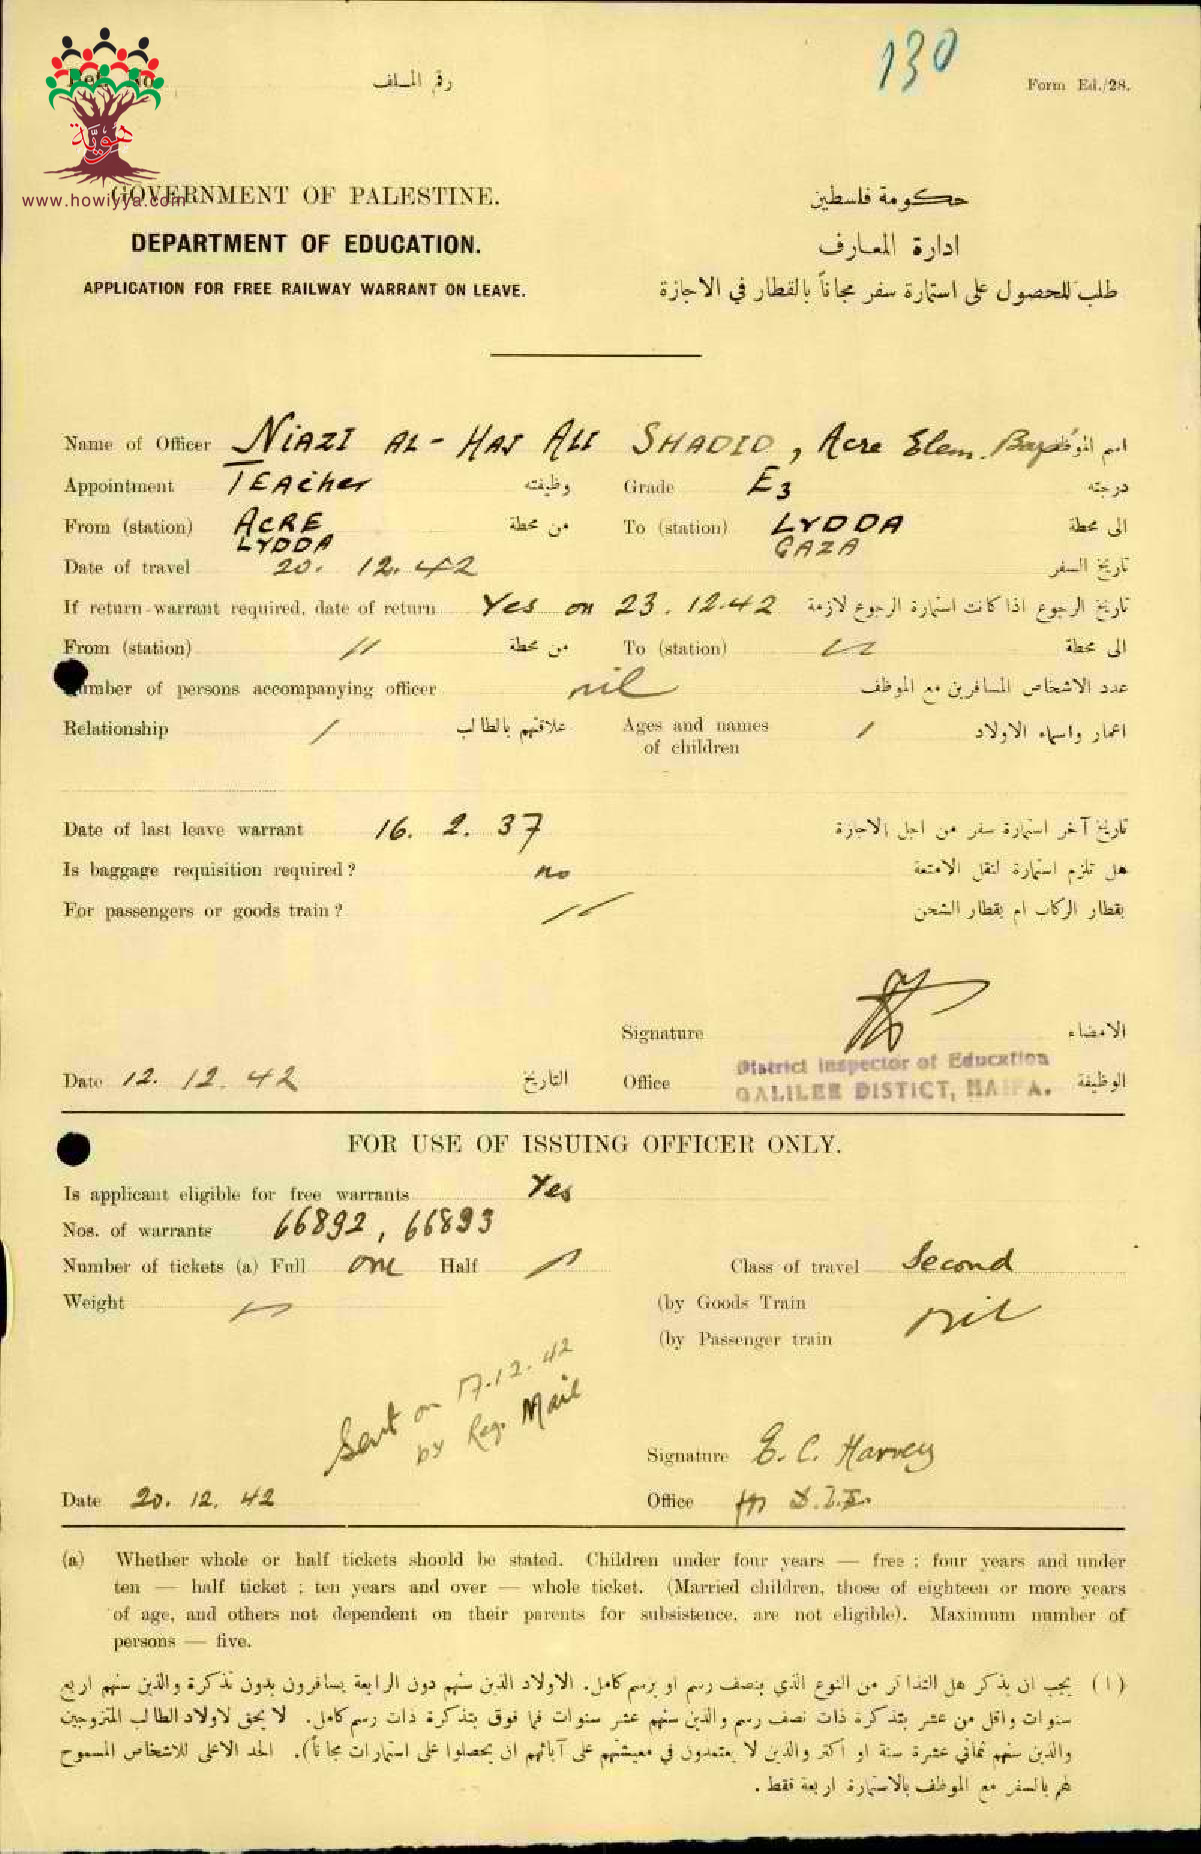 130
Ref. No. رقم الملف
Form Ed./28.
هويّة
www.howiyya.com
GOVERNMENT OF PALESTINE. حكومة فلسطين
DEPARTMENT OF EDUCATION. ادارة المعارف
APPLICATION FOR FREE RAILWAY WARRANT ON LEAVE. طلب للحصول على استمارة سفر مجاناً بالقطار في الاجازة
Name of Officer NIAZI AL-HAJ ALI SHADID, Acre Elem. Boys' اسم الموظف
Appointment TEAcher وظيفته Grade E3 درجته
From (station) ACRE من محطة To (station) LYDDA الى محطة
LYDDA GAZA
Date of travel 20. 12. 42 تاريخ السفر
If return warrant required, date of return Yes on 23. 12. 42 تاريخ الرجوع اذا كانت استمارة الرجوع لازمة
From (station) " من محطة To (station) " الى محطة
Number of persons accompanying officer nil عدد الاشخاص المسافرين مع الموظف
Relationship / علاقتهم بالطالب Ages and names / اعمار واسماء الاولاد
of children
Date of last leave warrant 16. 2. 37 تاريخ آخر استمارة سفر من اجل الاجازة
Is baggage requisition required? no هل تلزم استمارة لنقل الامتعة
For passengers or goods train? " بقطار الركاب ام بقطار الشحن
Signature الامضاء
District Inspector of Education
Date 12. 12. 42 التاريخ Office GALILEE DISTICT, HAIFA. الوظيفة
FOR USE OF ISSUING OFFICER ONLY.
Is applicant eligible for free warrants Yes
Nos. of warrants 66892, 66893
Number of tickets (a) Full one Half Class of travel Second
Weight (by Goods Train nil
(by Passenger train
Sent on 17.12.42
by Reg. Mail
Signature E. C. Harvey
Date 20. 12. 42 Office D.I.E.
(a) Whether whole or half tickets should be stated. Children under four years — free ; four years and under
ten — half ticket ; ten years and over — whole ticket. (Married children, those of eighteen or more years
of age, and others not dependent on their parents for subsistence, are not eligible). Maximum number of
persons — five.
(ا) يجب ان يذكر هل التذاكر من النوع الذي بنصف رسم او برسم كامل. الاولاد الذين سنهم دون الرابعة يسافرون بدون تذكرة والذين سنهم اربع
سنوات واقل من عشر بتذكرة ذات نصف رسم والذين سنهم عشر سنوات فما فوق بتذكرة ذات رسم كامل. لا يحق لاولاد الطالب المتزوجين
والذين سنهم ثماني عشرة سنة او اكثر والذين لا يعتمدون في معيشتهم على آبائهم ان يحصلوا على استمارات مجاناً). الحد الاعلى للاشخاص المسموح
لهم بالسفر مع الموظف بالاستمارة اربعة فقط.